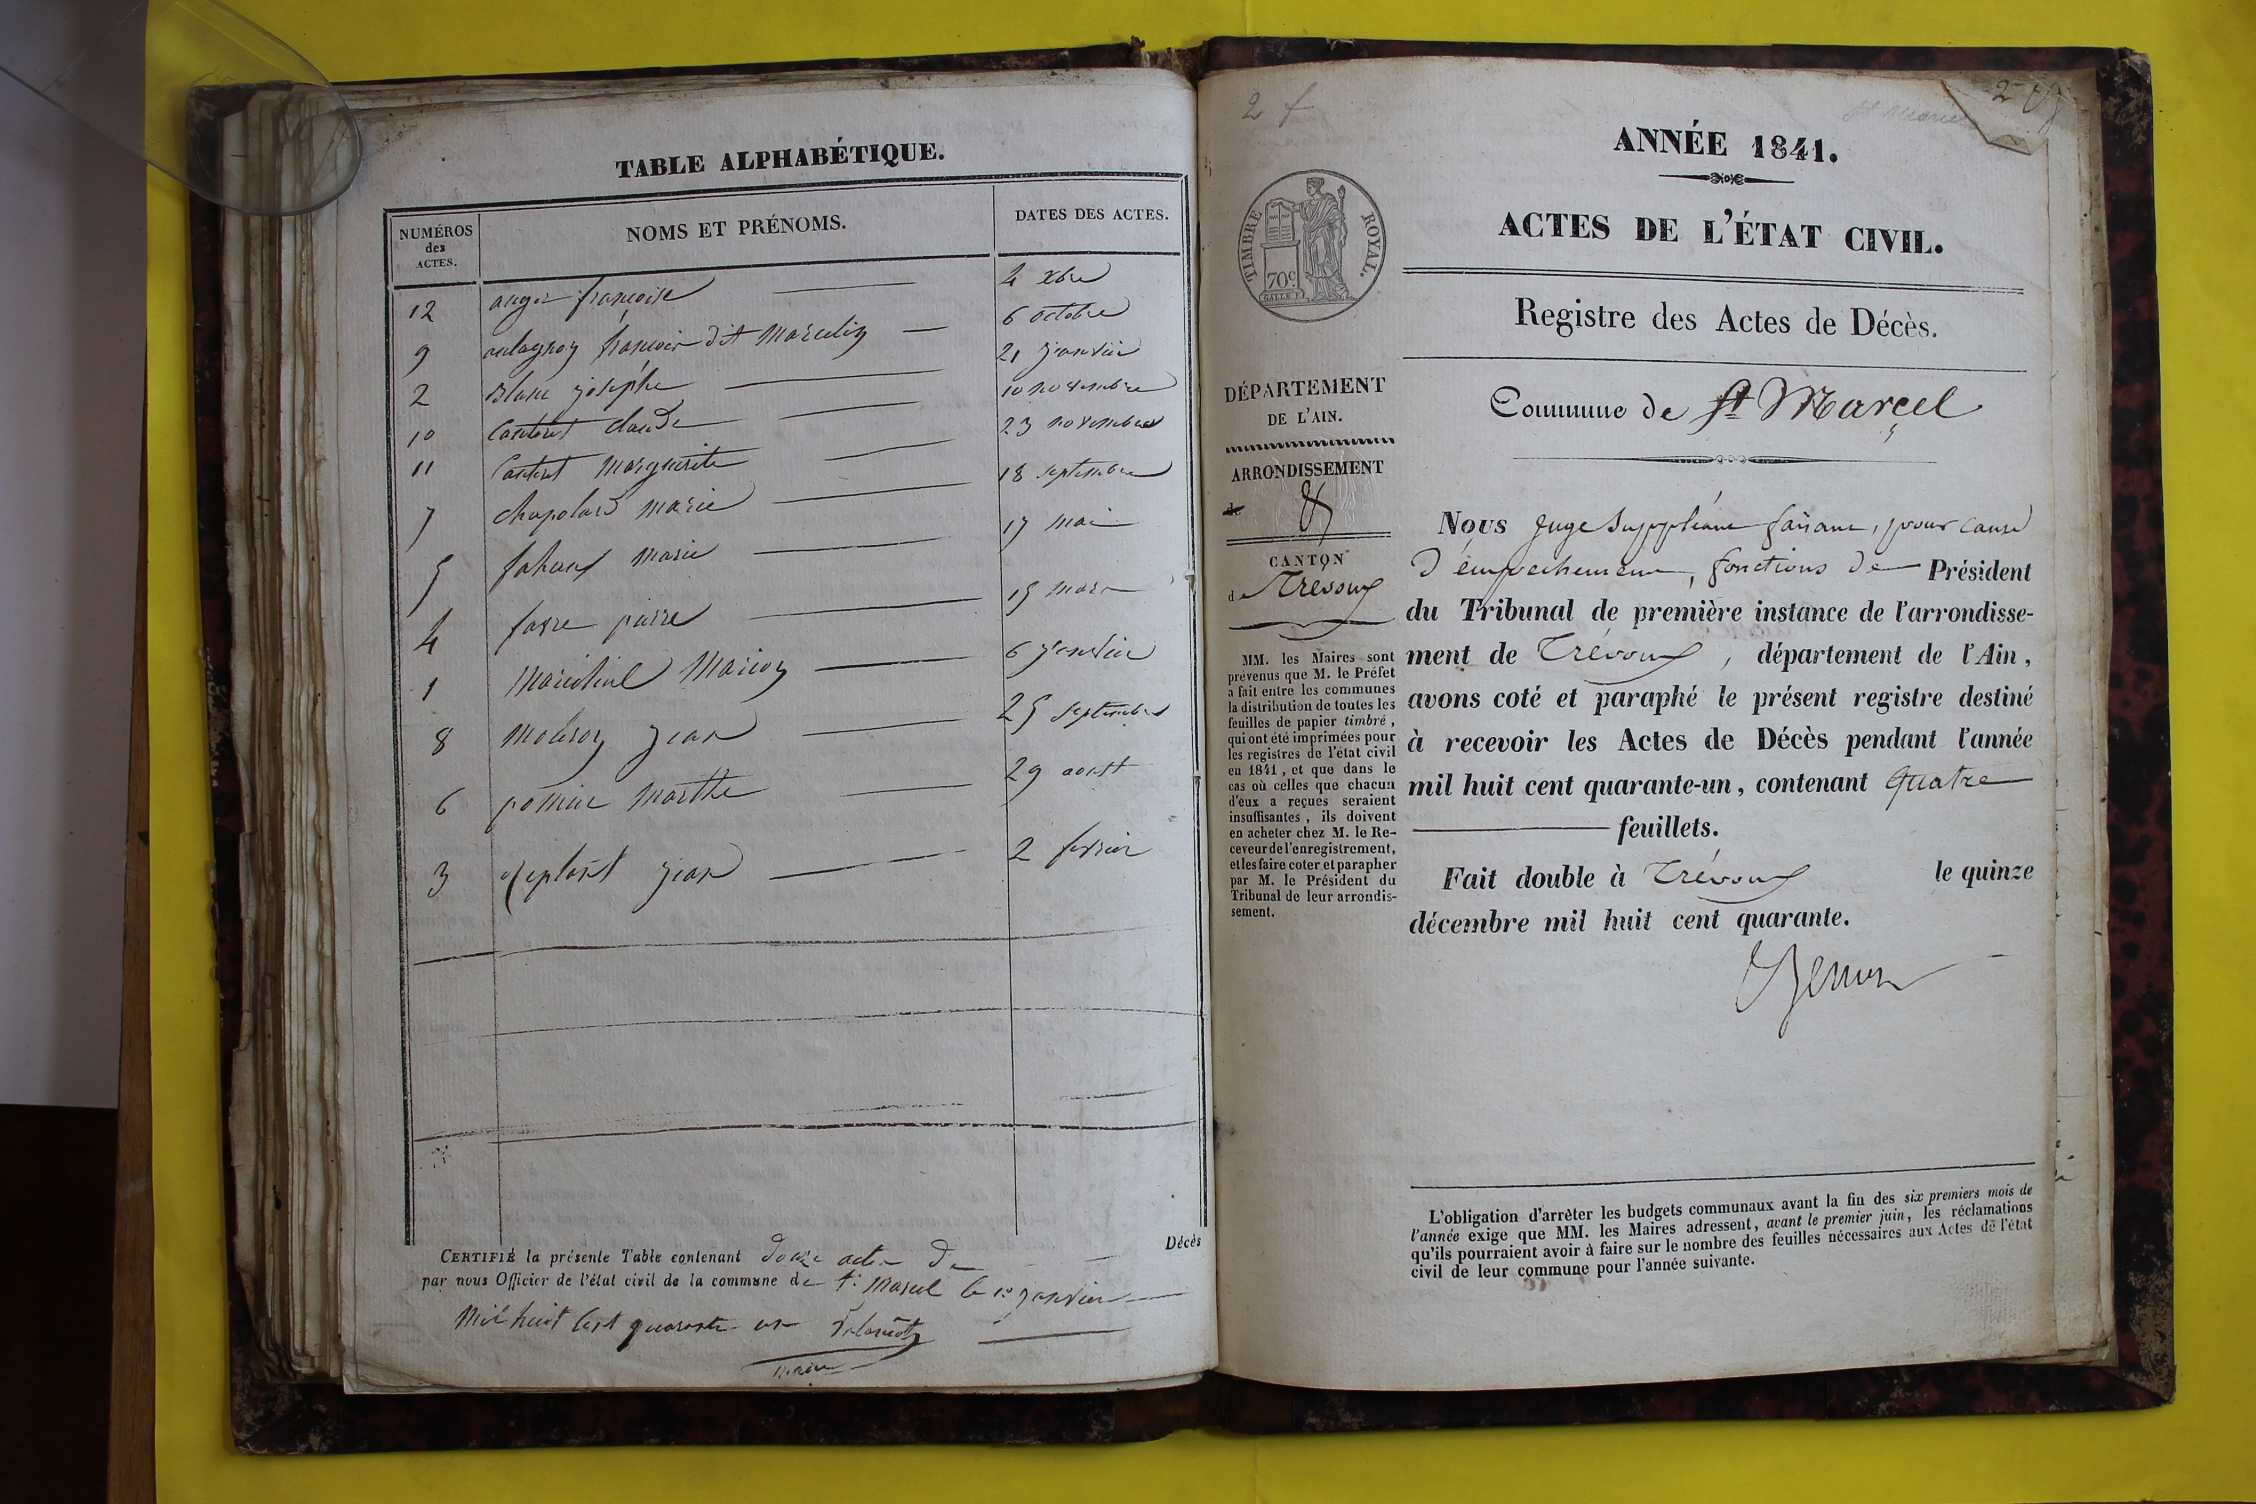 TABLE ALPHABÉTIQUE.
NUMÉROS des ACTES. NOMS ET PRÉNOMS. DATES DES ACTES.
12 auger françoise 4 xbre
9 françois dit Marcelin 6 octobre
2 Blanc josephe 21 janvier
10 Contant claude 10 novembre
11 Contant Marguerite 23 novembre
7 chapolard marie 18 septembre
5 marie 17 mai
4 favre pierre 15 mars
1 6 janvier
8 jean 25 septembre
6 marthe 29 aoust
3 jean 2 fevrier
CERTIFIÉ la présente Table contenant douze actes de Décès
par nous Officier de l'état civil de la commune de St Marcel le 1er janvier
Mil huit cent quarante un
maire
2 f
St Marcel
ANNÉE 1841.
ACTES DE L'ÉTAT CIVIL.
TIMBRE ROYAL.
70c
Registre des Actes de Décès.
Commune de St Marcel
DÉPARTEMENT
DE L'AIN.
ARRONDISSEMENT
de
CANTON
de Trévoux
MM. les Maires sont
prévenus que M. le Préfet
a fait entre les communes
la distribution de toutes les
feuilles de papier timbré,
qui ont été imprimées pour
les registres de l'état civil
en 1841, et que dans le
cas où celles que chacun
d'eux a reçues seraient
insuffisantes, ils doivent
en acheter chez M. le Re-
ceveur de l'enregistrement,
et les faire coter et parapher
par M. le Président du
Tribunal de leur arrondis-
sement.
Nous Juge Suppléant faisant, pour cause
d'empechement, fonctions de Président
du Tribunal de première instance de l'arrondisse-
ment de Trévoux, département de l'Ain,
avons coté et paraphé le présent registre destiné
à recevoir les Actes de Décès pendant l'année
mil huit cent quarante-un, contenant quatre
feuillets.
Fait double à Trévoux le quinze
décembre mil huit cent quarante.
L'obligation d'arrêter les budgets communaux avant la fin des six premiers mois de
l'année exige que MM. les Maires adressent, avant le premier juin, les réclamations
qu'ils pourraient avoir à faire sur le nombre des feuilles nécessaires aux Actes de l'état
civil de leur commune pour l'année suivante.